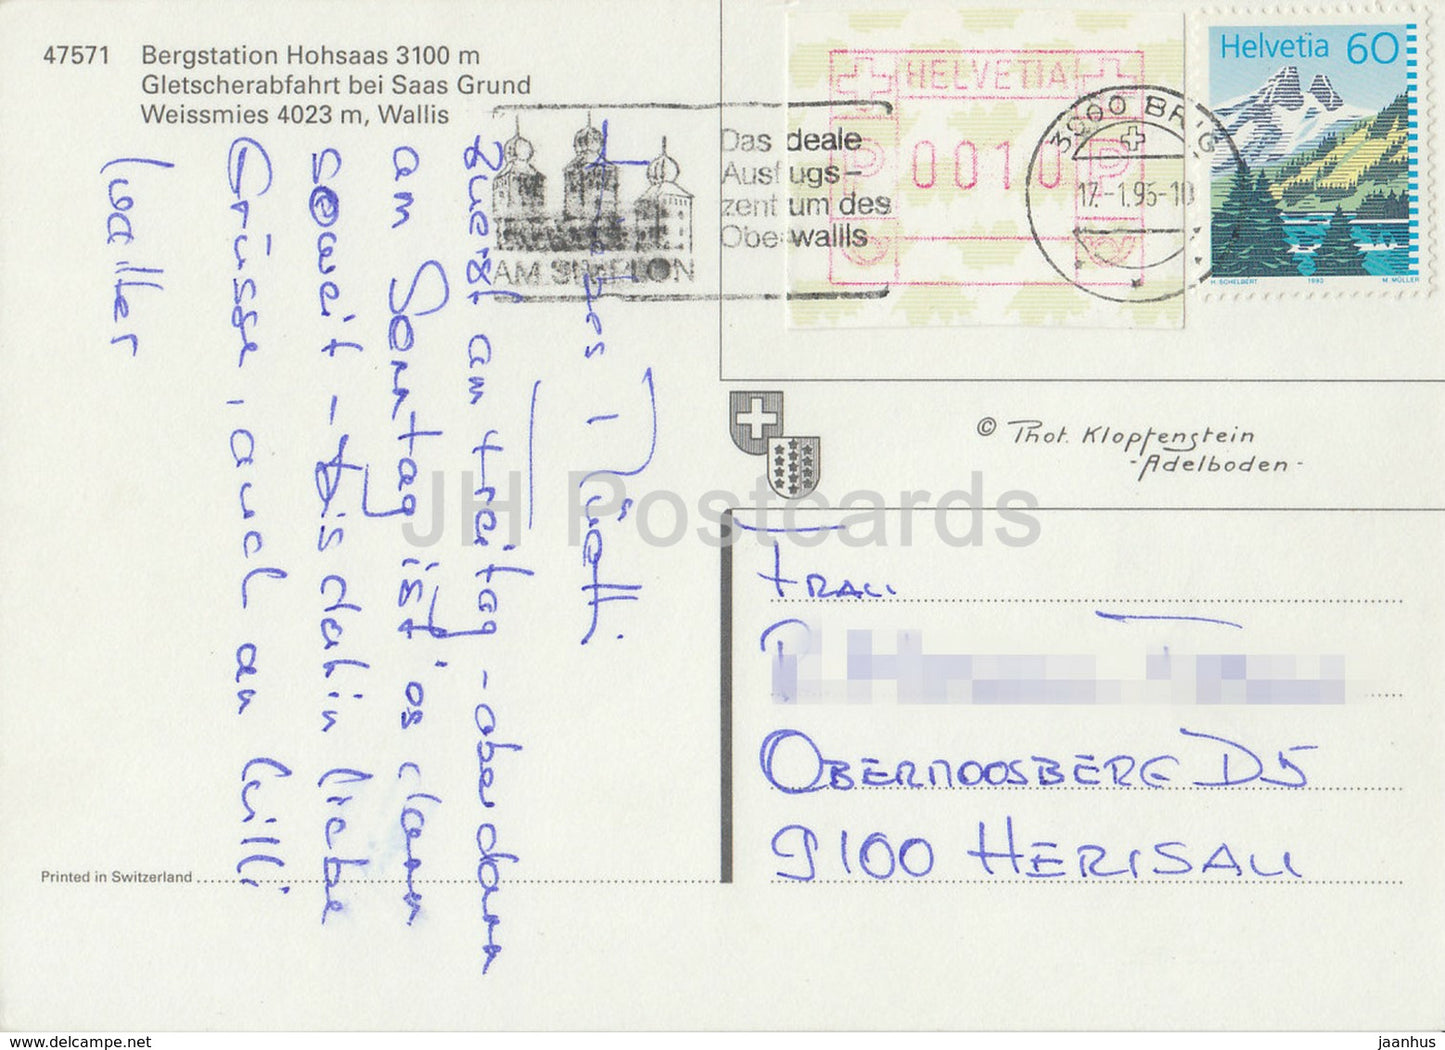 47571 Bergstation Hohsaas 3100 m
Gletscherabfahrt bei Saas Grund
Weissmies 4023 m, Wallis
AM SIMPLON
Das ideale
Ausflugs-
zentrum des
Oberwallis
HELVETIA
P 0010 P
3900 BRIG
17.-1.95-10
Helvetia 60
H. SCHELBERT 1993 M. MÜLLER
© Phot. Klopfenstein
- Adelboden -
JH Postcards
Rüotti
zuerst am Freitag - aber dann
am Sonntag ist's dann
soweit - bis dahin liebe
Grüsse, auch an Willi
Walter
FRAU
OBERMOOSBERG D5
9100 HERISAU
Printed in Switzerland
www.jhpostcards.com
jaanhus